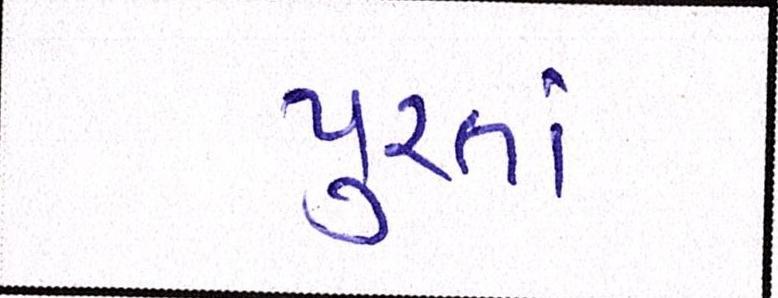 પુરતાં